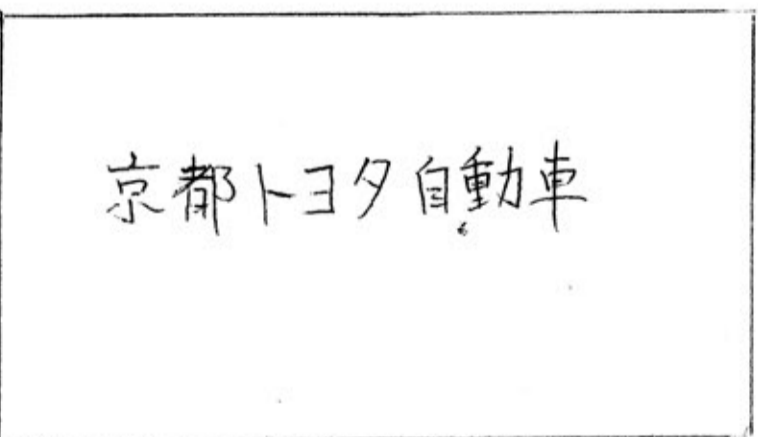 京都トヨタ自動車